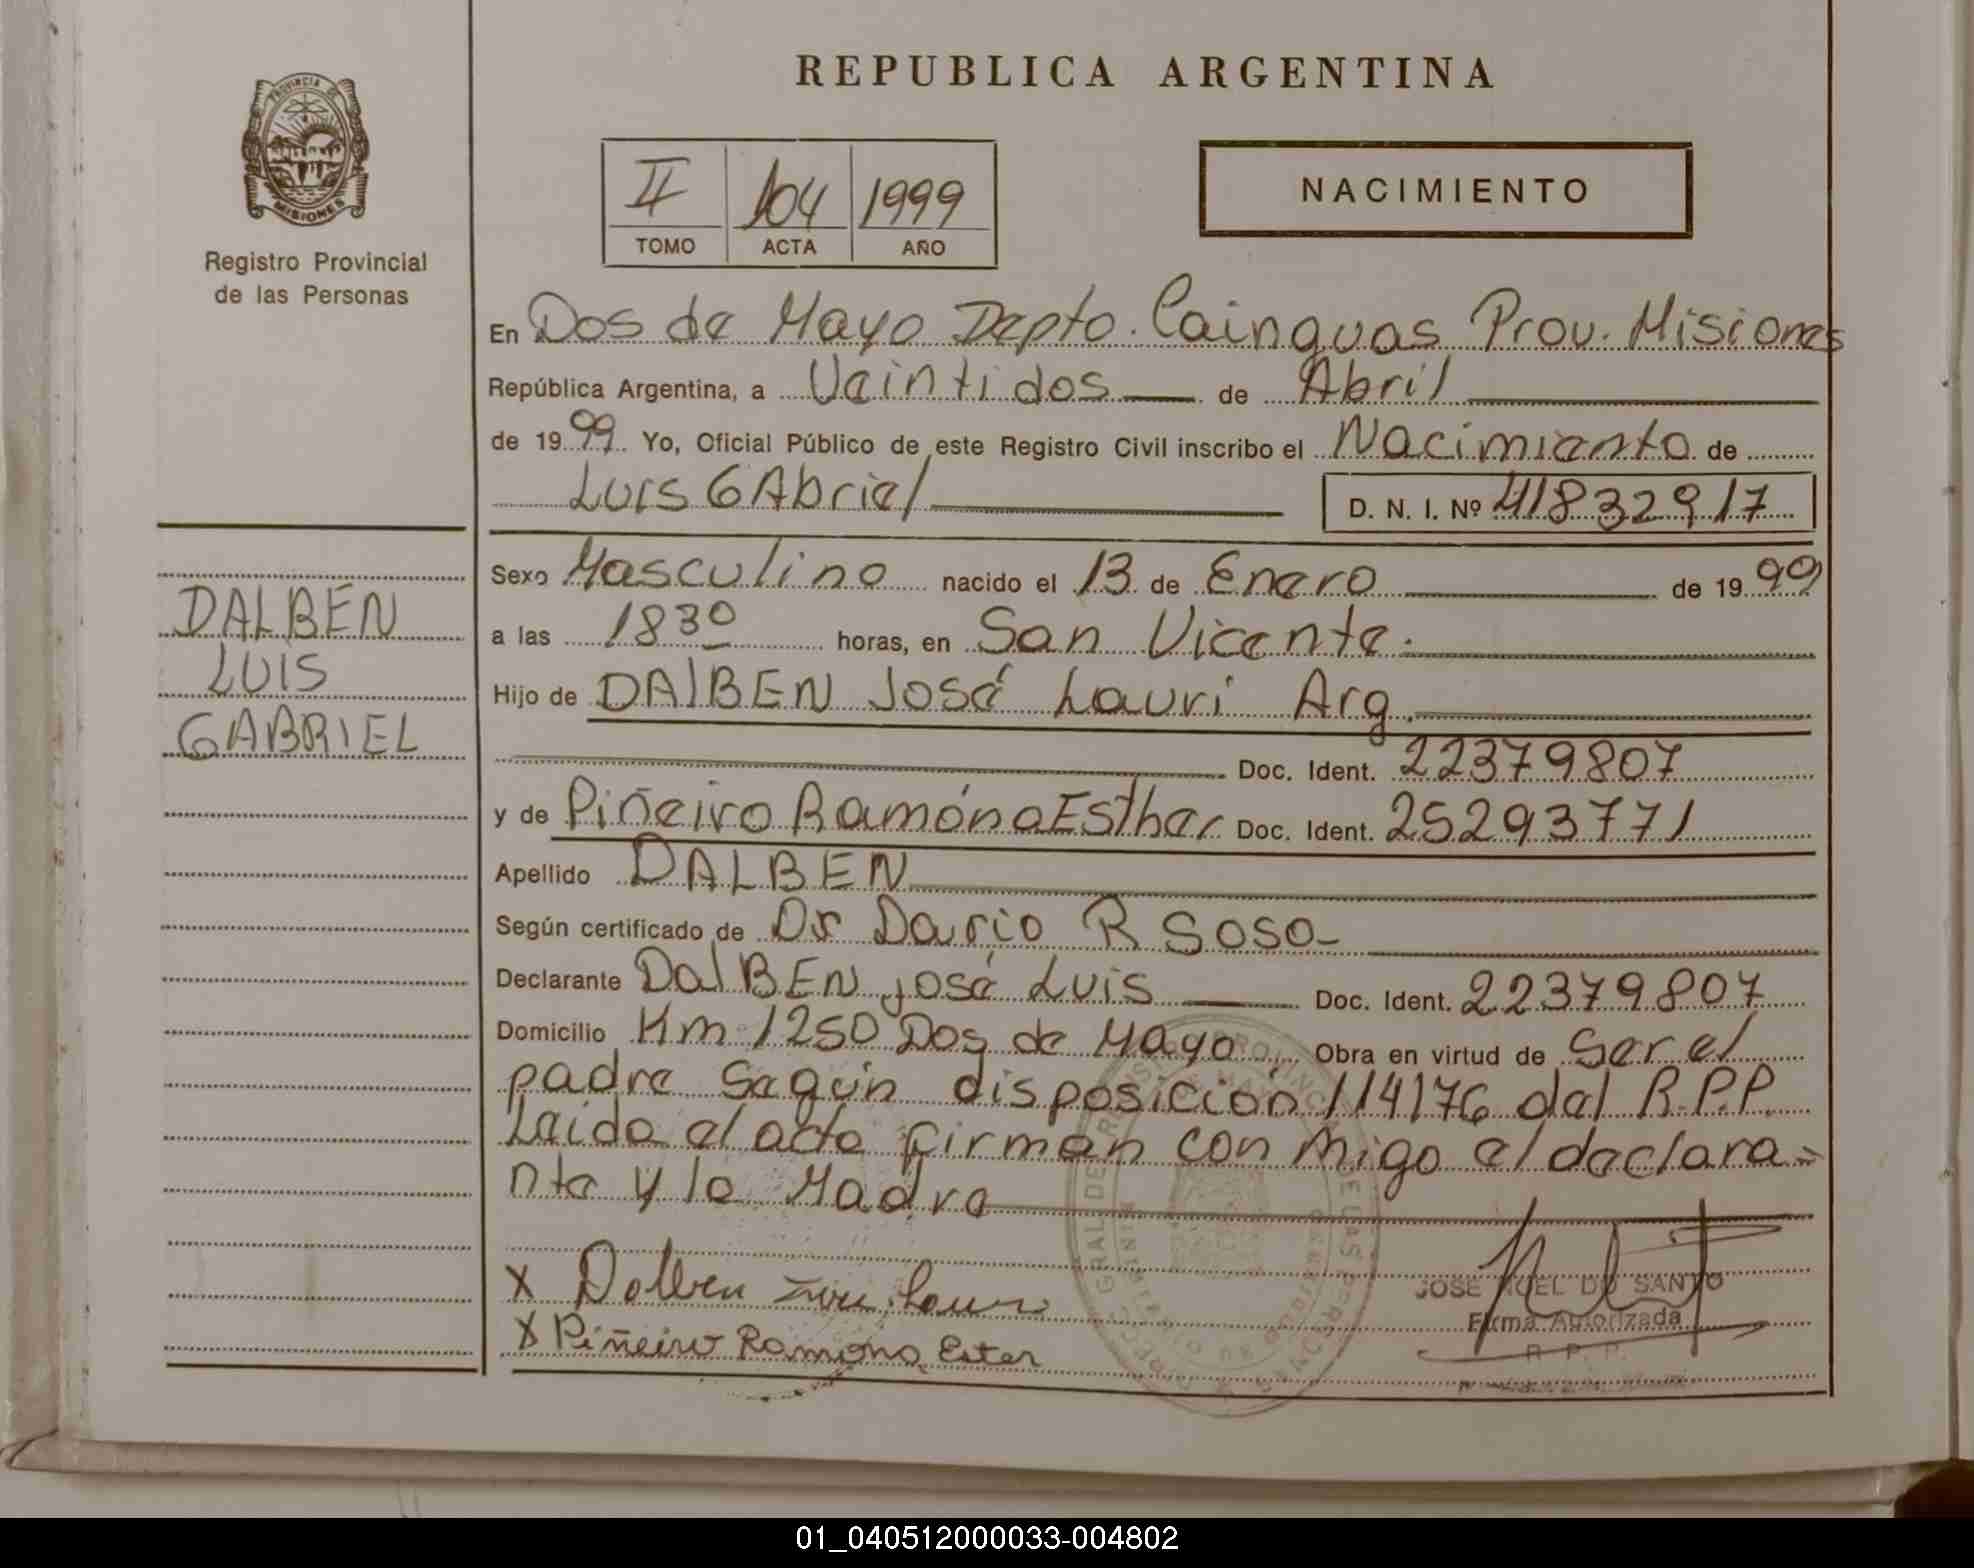 REPUBLICA ARGENTINA
PROVINCIA DE
MISIONES
Registro Provincial
de las Personas
II 104 1999
TOMO ACTA AÑO
NACIMIENTO
En Dos de Mayo Depto. Cainguas Prov. Misiones
República Argentina, a Veintidos de Abril
de 1999 Yo, Oficial Público de este Registro Civil inscribo el Nacimiento de
Luis GAbriel D. N. I. Nº 41832917
Sexo Masculino nacido el 13 de Enero de 1999
a las 18 30 horas, en San Vicente.
Hijo de DAlBEN José Lauri Arg.
Doc. Ident. 22379807
y de Piñeiro Ramóna Esther Doc. Ident. 25293771
Apellido DALBEN
Según certificado de Dr Dario R Sosa
Declarante DalBEN José Luis Doc. Ident. 22379807
Domicilio Km 1250 Dos de Mayo Obra en virtud de Ser el
padre Según disposición 114176 del R.P.P.
Leida el acta firman con migo el declara-
nte y la Madre
DALBEN
LUIS
GABRIEL
X Dalben José Lauri
X Piñeiro Ramona Ester
JOSE NOEL DO SANTO
Firma Autorizada
R. P. P.
01_040512000033-004802